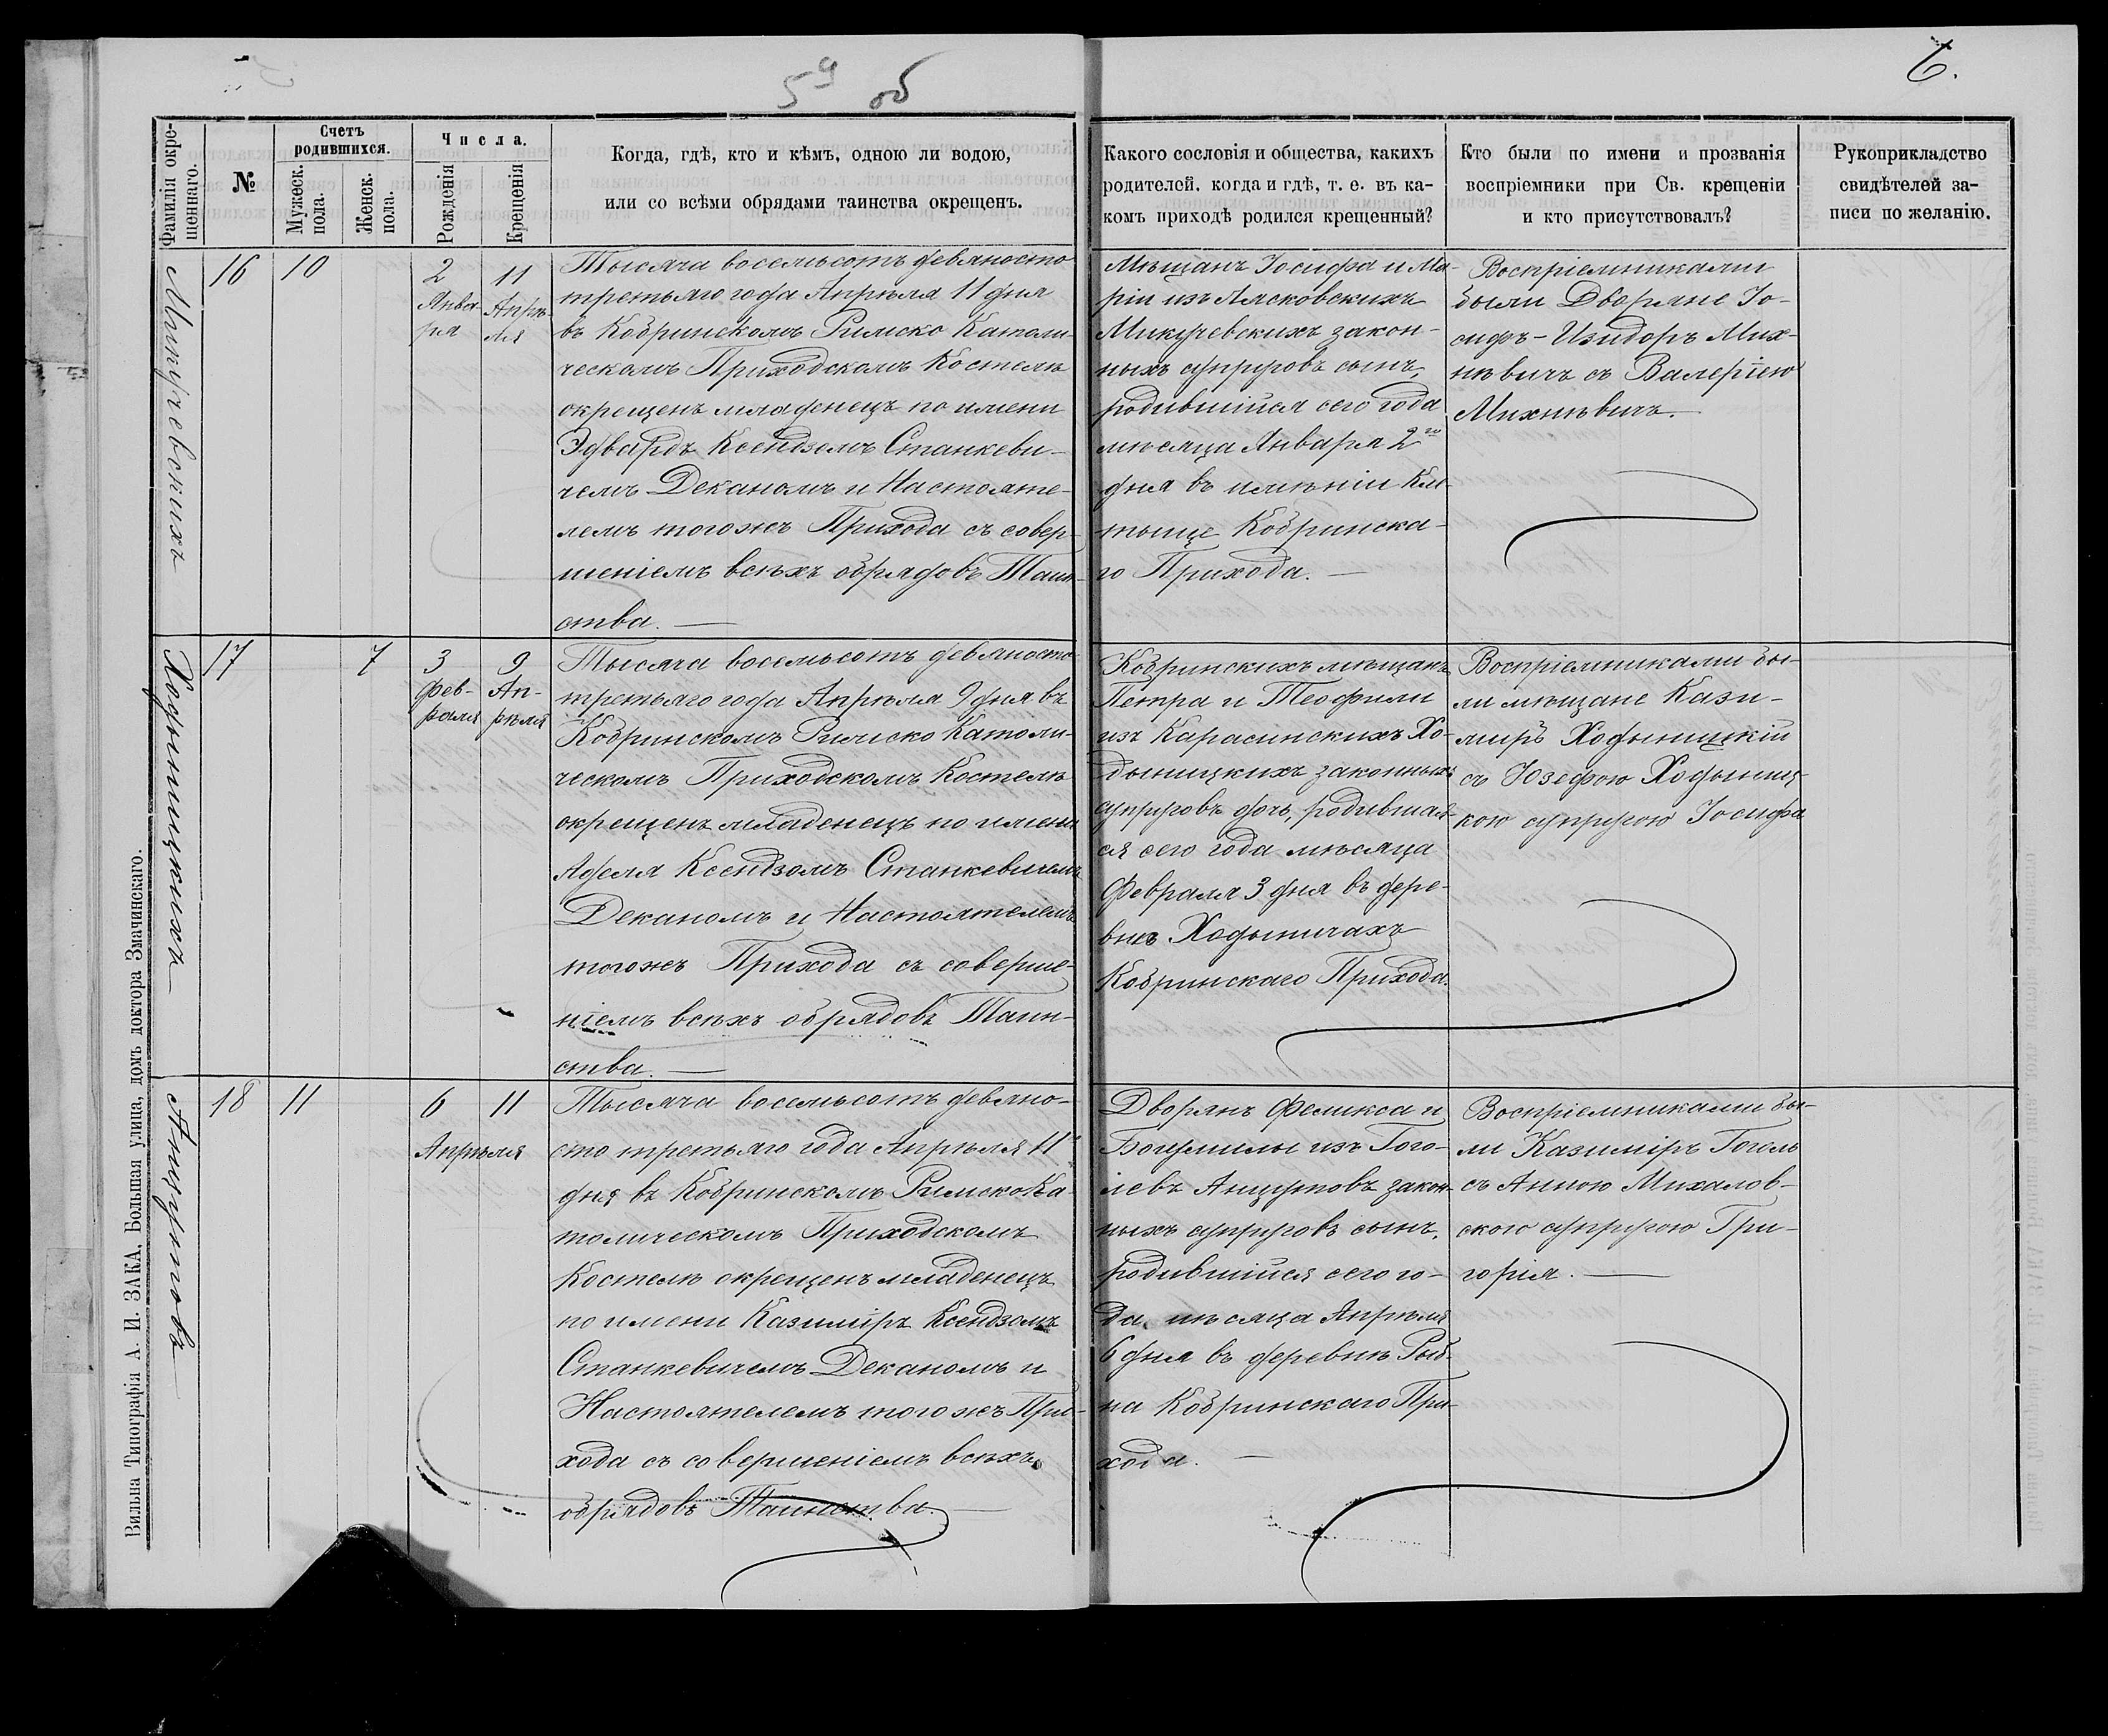 5а об
6.
Фамилія окре-
щеннаго.
№
Счетъ
родившихся.
Мужеск.
пола.
Женск.
пола.
Числа.
Рожденія
Крещенія
Когда, гдѣ, кто и кѣмъ, одною ли водою,
или со всѣми обрядами таинства окрещенъ.
Какого сословія и общества, какихъ
родителей. когда и гдѣ, т. е. въ ка-
комъ приходѣ родился крещенный?
Кто были по имени и прозванія
воспріемники при Св. крещеніи
и кто присутствовалъ?
Рукоприкладство
свидѣтелей за-
писи по желанію.
Микучевскихъ
16
10
2
Янва-
ря
11
Апрѣ-
ля
Тысяча восемьсотъ девяносто
третьяго года Апрѣля 11 дня
въ Кобринскомъ Римско Католи-
ческомъ Приходскомъ Костелѣ
окрещенъ младенецъ по имени
Эдвардъ Ксендзомъ Станкеви-
чемъ Деканомъ и Настояте-
лемъ тогожъ Прихода съ совер-
шеніемъ всѣхъ обрядовъ Таин-
ства.
Мѣщанъ Іосифа и Ма-
ріи изъ Лясковскихъ
Микучевскихъ закон-
ныхъ супруговъ сынъ,
родившійся сего года
мѣсяца Января 2го
дня въ имѣніи
Кобринска-
го Прихода.
Воспріемниками
были Дворяне Іо-
сифъ-Изидоръ Мих-
нѣвичъ съ Валеріею
Михнѣвичъ.
Ходыницкихъ
17
7
3
Фев-
раля
9
Ап-
рѣля
Тысяча восемьсотъ девяносто
третьяго года Апрѣля 9 дня въ
Кобринскомъ Римско Католи-
ческомъ Приходскомъ Костелѣ
окрещенъ младенецъ по имени
Аделя Ксендзомъ Станкевичемъ
Деканомъ и Настоятелемъ
тогожъ Прихода съ соверше-
ніемъ всѣхъ обрядовъ Таин-
ства.
Кобринскихъ мѣщанъ
Петра и Теофили
изъ Карасинскихъ Хо-
дыницкихъ законныхъ
супруговъ дочь, родившая-
ся сего года мѣсяца
Февраля 3 дня въ дере-
внѣ Ходыничахъ
Кобринскаго Прихода.
Воспріемниками бы-
ли мѣщане Кази-
миръ Ходыницкій
съ Юзефою Ходыниц-
кою супругою Іосифа
Анцутовъ
18
11
6
11
Апрѣля
Тысяча восемьсотъ девяно-
сто третьяго года Апрѣля 11
дня въ Кобринскомъ Римско Ка-
толическомъ Приходскомъ
Костелѣ окрещенъ младенецъ
по имени Казиміръ Ксендзомъ
Станкевичемъ Деканомъ и
Настоятелемъ того жъ При-
хода съ совершеніемъ всѣхъ
обрядовъ Таинства.
Дворянъ Феликса и
Богумилы изъ Гого-
левъ Анцутовъ закон-
ныхъ супруговъ сынъ,
родившійся сего го-
да, мѣсяца Апрѣля
6 дня въ деревнѣ Рыб-
на Кобринскаго При-
хода.
Воспріемниками бы-
ли Казиміръ Гоголь
съ Анною Михалов-
скою супругою Гри-
горія.
Вильна Типографія А. И. ЗАКА. Большая улица, домъ доктора Змачинскаго.